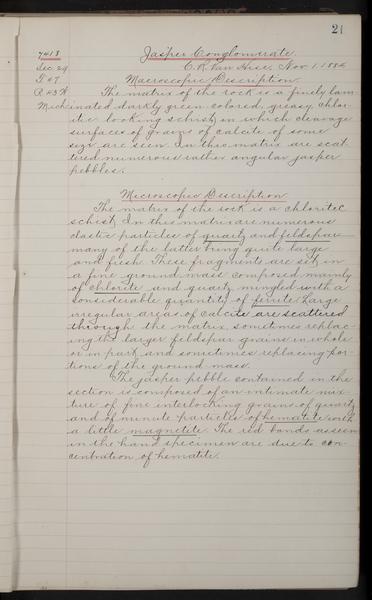 21
7413 Jasper Conglomerate.
Sec 29 C. R. Van Hise, Nov 1, 1886
T 47 Macroscopic Description.
R 43 W The matrix of the rock is a finely lam
Mich inated darkly green colored, greasy, chlor-
itic looking schist, in which cleavage
surfaces of grains of calcite of some
size are seen. In this matrix are scat
tered numerous rather angular jasper
pebbles.
Microscopic Description
The matrix of the rock is a chloritic
schist. In this matrix are numerous
clastic particles of quartz and feldspar
many of the latter being quite large
and fresh. These fragments are set in
a fine ground mass composed mainly
of chlorite and quartz mingled with a
considerable quantity of ferrite. Large
irregular areas of calcite are scattered
through the matrix, sometimes replac-
ing the larger feldspar grains in whole
or in part, and sometimes replacing por-
tions of the ground mass.
The jasper pebble contained in the
section is composed of an intimate mix
ture of fine interlocking grains of quartz
and of minute particles of hematite with
a little magnetite. The red bands as seen
in the hand specimen are due to con-
centration of hematite.